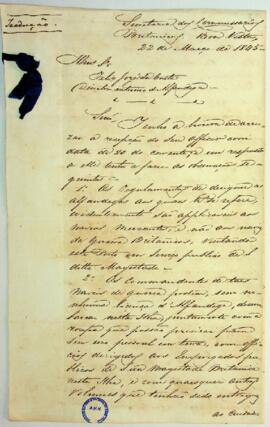 Tradução.
Secretaria dos Commissarios
Britanicos, Boa Vista
22 de Março de 1845.
Illmo Sr.
Felis José da Costa
Director interino d'Alfandega
Senr. Tenho a honra de accu-
zar a recepção do Seu Officio com
data de 20 do corrente, e em resposta
a elle tenho a fazer as observações se-
guintes
1.º Os Regulamentos de
Alfandega aos quaes se refere,
evidentemente são applicaveis aos
navios Mercantes, e não aos navios
de Guerra Britanicos,
este Porto em Serviço publico de Sua
ditta Magestade.
2.º Os Commandantes de taes
Navios de guerra podem, sem ne-
nhuma licença d'Alfandega, desem-
barcar nesta Ilha, juntamente com a
roupa que possão precisar para
seu uso pessoal em terra, com offi-
cios dirigidos aos Empregados pu-
blicos de Sua Magestade Britanica
nesta Ilha, e com quaesquer outros
Volumes que tenhão sido entregues
ao cuidado
A.H.U.